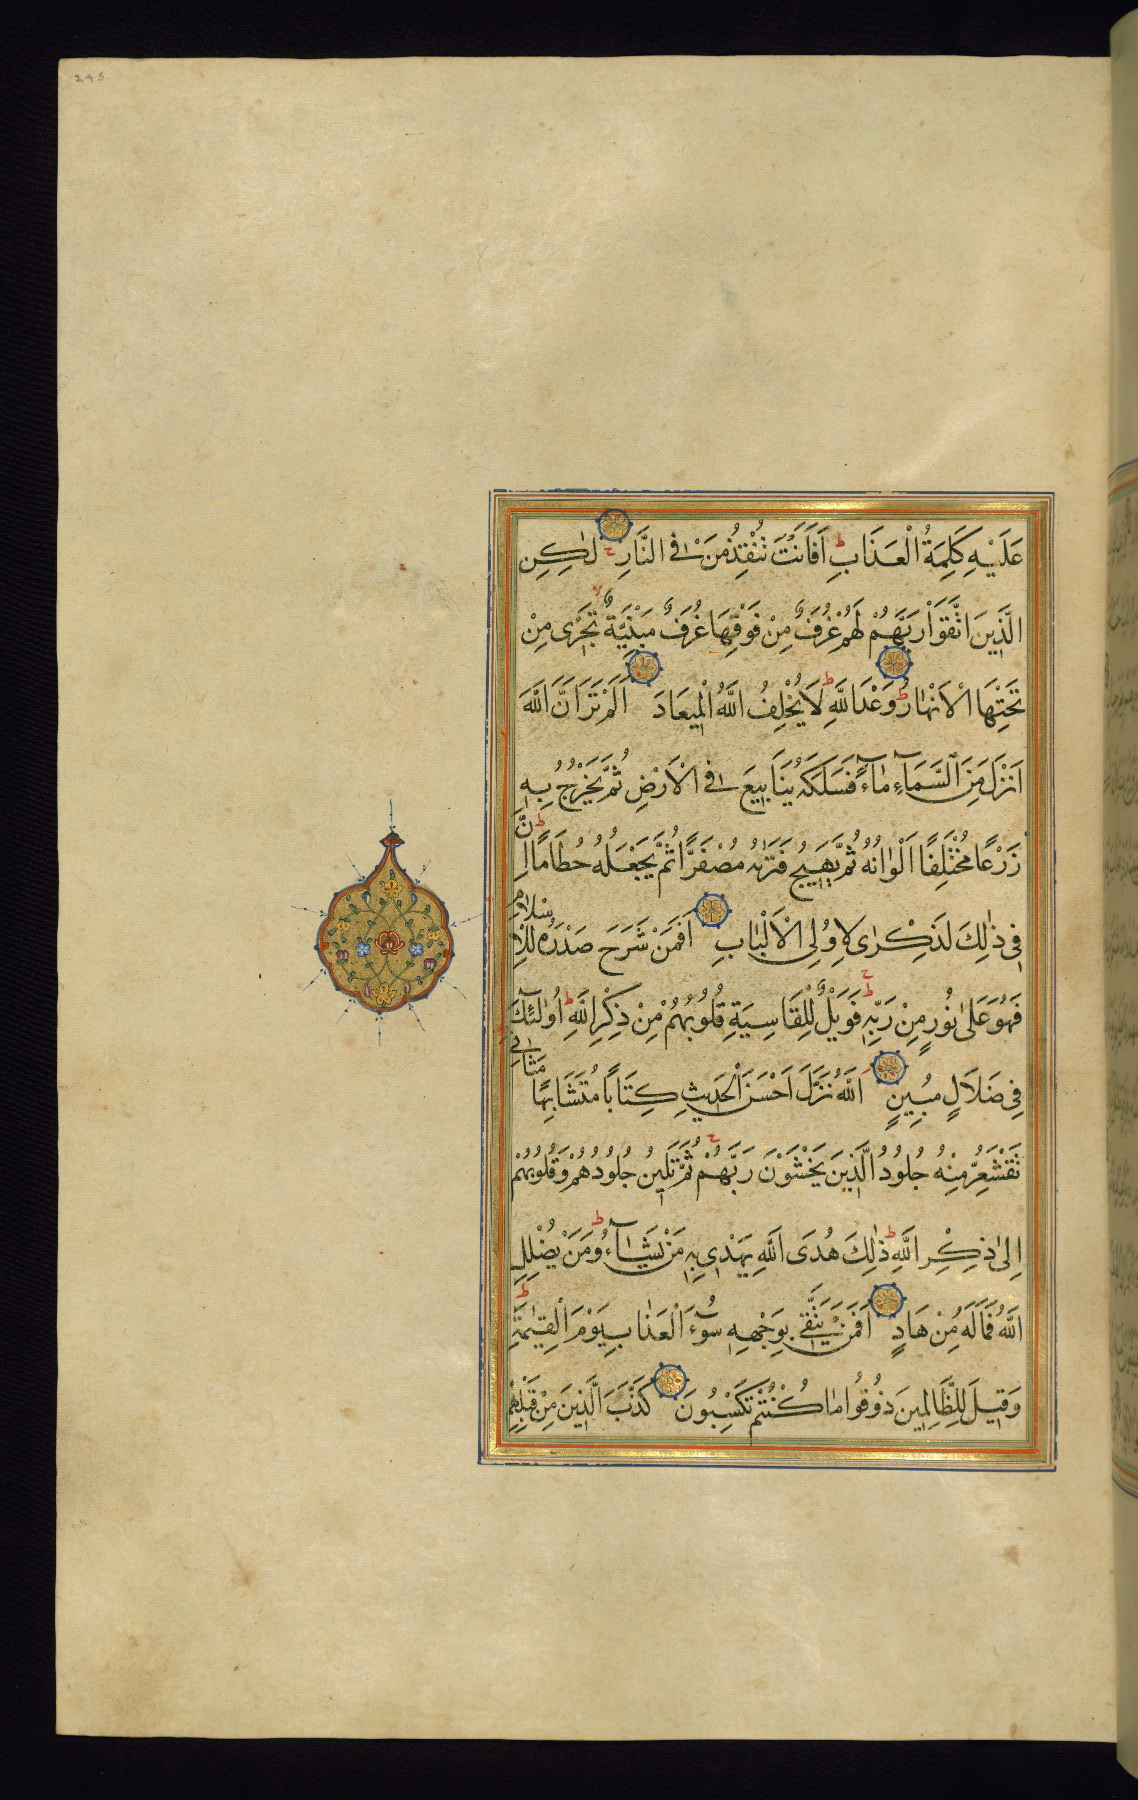 245
عَلَيْهِ كَلِمَةُ الْعَذَابِ اَفَاَنْتَ تُنْقِذُ مَنْ فِى النَّارِ لٰكِنِ
الَّذِينَ اتَّقَوْا رَبَّهُمْ لَهُمْ غُرَفٌ مِنْ فَوْقِهَا غُرَفٌ مَبْنِيَّةٌ تَجْرٖى مِنْ
تَحْتِهَا الْاَنْهَارُ وَعْدَ اللّٰهِ لَا يُخْلِفُ اللّٰهُ الْمٖيعَادَ اَلَمْ تَرَ اَنَّ اللّٰهَ
اَنْزَلَ مِنَ السَّمَآءِ مَآءً فَسَلَكَهُ يَنَابٖيعَ فِى الْاَرْضِ ثُمَّ يُخْرِجُ بِهٖ
زَرْعًا مُخْتَلِفًا اَلْوَانُهُ ثُمَّ يَهٖيجُ فَتَرٰيهُ مُصْفَرًّا ثُمَّ يَجْعَلُهُ حُطَامًا اِنَّ
فٖى ذٰلِكَ لَذِكْرٰى لِاُولِى الْاَلْبَابِ اَفَمَنْ شَرَحَ صَدْرَهُ لِلْاِسْلَامِ
فَهُوَ عَلٰى نُورٍ مِنْ رَبِّهٖ فَوَيْلٌ لِلْقَاسِيَةِ قُلُوبُهُمْ مِنْ ذِكْرِ اللّٰهِ اُولٰٓئِكَ
فٖى ضَلَالٍ مُبٖينٍ اَللّٰهُ نَزَّلَ اَحْسَنَ الْحَدٖيثِ كِتَابًا مُتَشَابِهًا مَثَانِىَ
تَقْشَعِرُّ مِنْهُ جُلُودُ الَّذٖينَ يَخْشَوْنَ رَبَّهُمْ ثُمَّ تَلٖينُ جُلُودُهُمْ وَقُلُوبُهُمْ
اِلٰى ذِكْرِ اللّٰهِ ذٰلِكَ هُدَى اللّٰهِ يَهْدٖى بِهٖ مَنْ يَشَآءُ وَمَنْ يُضْلِلِ
اللّٰهُ فَمَا لَهُ مِنْ هَادٍ اَفَمَنْ يَتَّقٖى بِوَجْهِهٖ سُوٓءَ الْعَذَابِ يَوْمَ الْقِيٰمَةِ
وَقٖيلَ لِلظَّالِمٖينَ ذُوقُوا مَا كُنْتُمْ تَكْسِبُونَ كَذَّبَ الَّذٖينَ مِنْ قَبْلِهِمْ